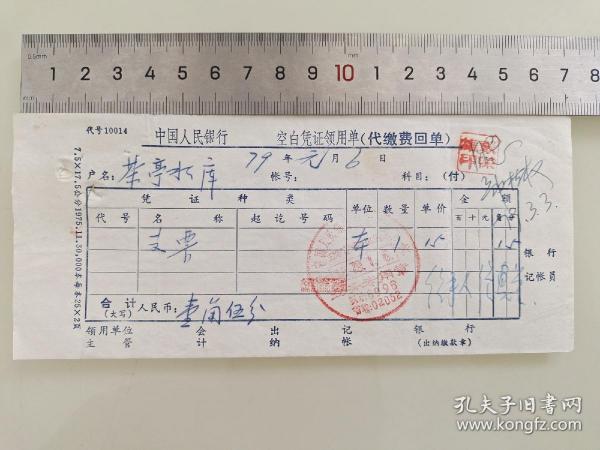 0.5mm 1 2 3 4 5 6 7 8 9 10 1 2 3 4 5 6 7 8
mm
代号10014
中国人民银行 空白凭证领用单(代缴费回单)
79年元月6日
户名: 茶亭水库 帐号: 科目:(付)
凭证种类 单位 数量 单价 金额
代号 名称 起讫号码 百十元角分
支票 本 1 15 15
合计(大写) 人民币: 壹角伍分
银行
记帐员
领用单位 会 出 记 银行
主管 计 纳 帐 (出纳缴款章)
7.5×17.5公分1975.11.50,000本
3.3.
孔夫子旧书网
www.kongfz.com